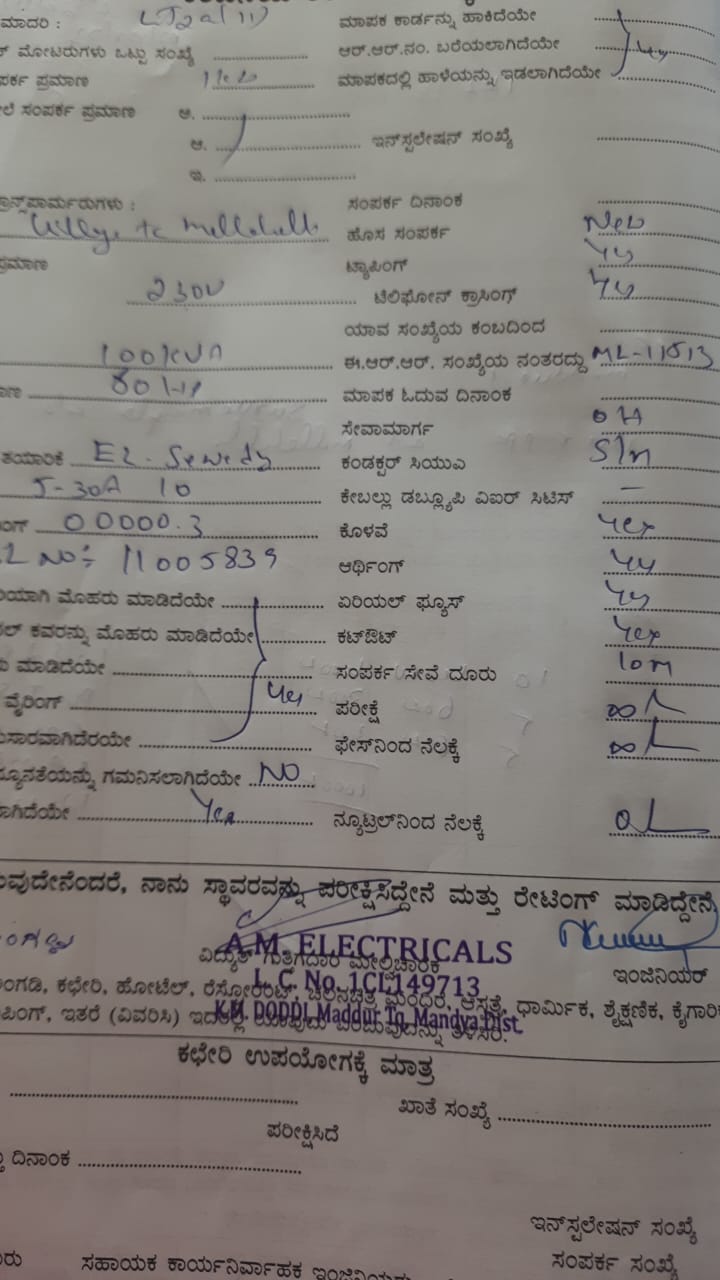 ಮಾದರಿ : LT2a(ii) ಮಾಪಕ ಕಾರ್ಡನ್ನು ಹಾಕಿದೆಯೇ
ಮೋಟರುಗಳು ಒಟ್ಟು ಸಂಖ್ಯೆ ಆರ್.ಆರ್.ನಂ. ಬರೆಯಲಾಗಿದೆಯೇ Yes
ಪರ್ಕ ಪ್ರಮಾಣ ಮಾಪಕದಲ್ಲಿ ಹಾಳೆಯನ್ನು ಇಡಲಾಗಿದೆಯೇ
ಲೆ ಸಂಪರ್ಕ ಪ್ರಮಾಣ ಅ.
ಆ. ಇನ್‌ಸ್ಟಲೇಷನ್ ಸಂಖ್ಯೆ
ಇ.
ನ್ಸ್‌ಫಾರ್ಮರುಗಳು : ಸಂಪರ್ಕ ದಿನಾಂಕ
ಹೊಸ ಸಂಪರ್ಕ New
ಪ್ರಮಾಣ ಟ್ಯಾಪಿಂಗ್ Yes
230V ಟೆಲಿಫೋನ್ ಕ್ರಾಸಿಂಗ್ Yes
ಯಾವ ಸಂಖ್ಯೆಯ ಕಂಬದಿಂದ
100KVA ಈ.ಆರ್.ಆರ್. ಸಂಖ್ಯೆಯ ನಂತರದ್ದು
ಾಣ 80HP ಮಾಪಕ ಓದುವ ದಿನಾಂಕ
ಸೇವಾಮಾರ್ಗ OH
ತಯಾರಿಕೆ EL-Sewedy ಕಂಡಕ್ಟರ್ ಸಿಯುವಿ
5-30A 10 ಕೇಬಲ್ಲು ಡಬ್ಲ್ಯೂಪಿ ವಿಐರ್ ಸಿಟಿಸ್ –
ಂಗ್ 00000.3 ಕೊಳವೆ Yes
L NO:- 11005839 ಆರ್ಥಿಂಗ್ Yes
ಯಾಗಿ ಮೊಹರು ಮಾಡಿದೆಯೇ ಏರಿಯಲ್ ಫ್ಯೂಸ್ Yes
ಲ್ ಕವರನ್ನು ಮೊಹರು ಮಾಡಿದೆಯೇ ಕಟ್‌ಔಟ್ Yes
ಮಾಡಿದೆಯೇ ಸಂಪರ್ಕ ಸೇವೆ ದೂರು 10m
ವೈರಿಂಗ್ Yes ಪರೀಕ್ಷೆ
ುಸಾರವಾಗಿದೆರಯೇ ಫೇಸ್‌ನಿಂದ ನೆಲಕ್ಕೆ
ನ್ಯೂನತೆಯನ್ನು ಗಮನಿಸಲಾಗಿದೆಯೇ NO
ಾಗಿದೆಯೇ Yes ನ್ಯೂಟ್ರಲ್‌ನಿಂದ ನೆಲಕ್ಕೆ
ವುದೇನೆಂದರೆ, ನಾನು ಸ್ಥಾವರವನ್ನು ಪರೀಕ್ಷಿಸಿದ್ದೇನೆ ಮತ್ತು ರೇಟಿಂಗ್ ಮಾಡಿದ್ದೇನೆ
A.M. ELECTRICALS
ವಿದ್ಯುತ್ ಗುತ್ತಿಗೆದಾರ ಮೇಲ್ವಿಚಾರಕ ಇಂಜಿನಿಯರ್
L.C. No. 1CL149713
ಂಗಡಿ, ಕಛೇರಿ, ಹೋಟೆಲ್, ರೆಸ್ಟೋರೆಂಟ್, ಚಲನಚಿತ್ರ ಮಂದಿರ, ಆಸ್ಪತ್ರೆ, ಧಾರ್ಮಿಕ, ಶೈಕ್ಷಣಿಕ, ಕೈಗಾರಿ
K.M. DODDI, Maddur Tq, Mandya Dist.
ಪಿಂಗ್, ಇತರೆ (ವಿವರಿಸಿ) ಇದರಲ್ಲಿ ಯಾವುದು ಬರುವುದೆನ್ನು ತಿಳಿಸಿರಿ.
ಕಛೇರಿ ಉಪಯೋಗಕ್ಕೆ ಮಾತ್ರ
ಖಾತೆ ಸಂಖ್ಯೆ
ಪರೀಕ್ಷಿಸಿದೆ
ದಿನಾಂಕ
ಇನ್‌ಸ್ಟಲೇಷನ್ ಸಂಖ್ಯೆ
ಸಹಾಯಕ ಕಾರ್ಯನಿರ್ವಾಹಕ ಇಂಜಿನಿಯರು ಸಂಪರ್ಕ ಸಂಖ್ಯೆ